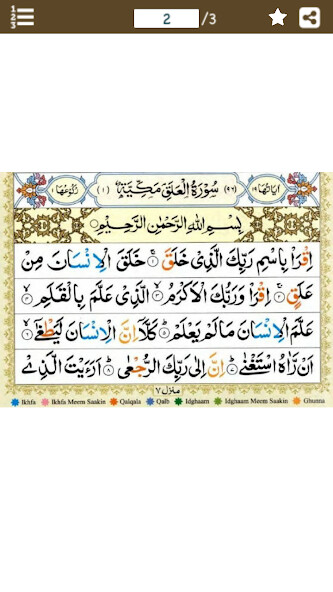 2 /3
اٰيَاتُهَا ١٩ (٩٦) سُوْرَةُ الْعَلَقِ مَكِّيَّةٌ (١) رُكُوْعُهَا ١
بِسْمِ اللّٰهِ الرَّحْمٰنِ الرَّحِيْمِ
اِقْرَاْ بِاسْمِ رَبِّكَ الَّذِيْ خَلَقَ ۝١ خَلَقَ الْاِنْسَانَ مِنْ
عَلَقٍ ۝٢ اِقْرَاْ وَرَبُّكَ الْاَكْرَمُ ۝٣ الَّذِيْ عَلَّمَ بِالْقَلَمِ ۝٤
عَلَّمَ الْاِنْسَانَ مَا لَمْ يَعْلَمْ ۝٥ كَلَّاۤ اِنَّ الْاِنْسَانَ لَيَطْغٰۤى ۝٦
اَنْ رَّاٰهُ اسْتَغْنٰى ۝٧ اِنَّ اِلٰى رَبِّكَ الرُّجْعٰى ۝٨ اَرَءَيْتَ الَّذِيْ
منزل ٧
Ikhfa Ikhfa Meem Saakin Qalqala Qalb Idghaam Idghaam Meem Saakin Ghunna